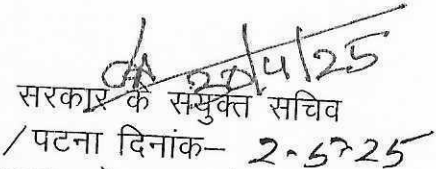 20/4/25
सरकार के संयुक्त सचिव
/पटना दिनांक– 2-5-25